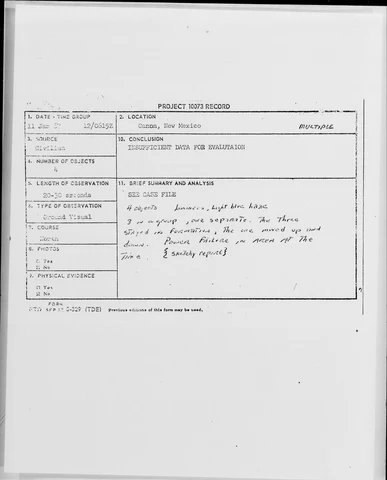 PROJECT 10073 RECORD
1. DATE - TIME GROUP
11 Jan 12/0615Z
2. LOCATION
Canon, New Mexico MULTIPLE
3. SOURCE
Civilian
10. CONCLUSION
INSUFFICIENT DATA FOR EVALUTAION
4. NUMBER OF OBJECTS
4
5. LENGTH OF OBSERVATION
20-30 seconds
11. BRIEF SUMMARY AND ANALYSIS
SEE CASE FILE
6. TYPE OF OBSERVATION
Ground Visual
4 objects, light blue
3 in a group, one separate. The Three
stayed in formation, The one moved up and
down. Power Failure in area at The
Time. {sketchy report}
7. COURSE
North
8. PHOTOS
□ Yes
□ No
9. PHYSICAL EVIDENCE
□ Yes
□ No
FORM
SEP 0-329 (TDE) Previous editions of this form may be used.